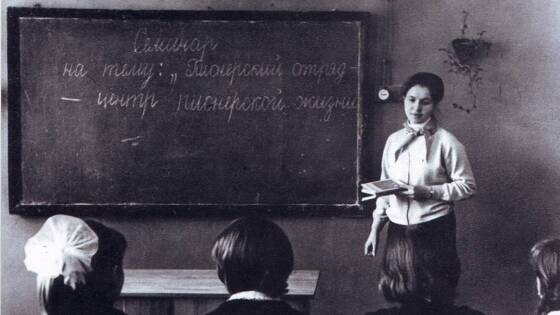 Семинар
на тему: „Пионерский отряд-
— центр пионерской жизни